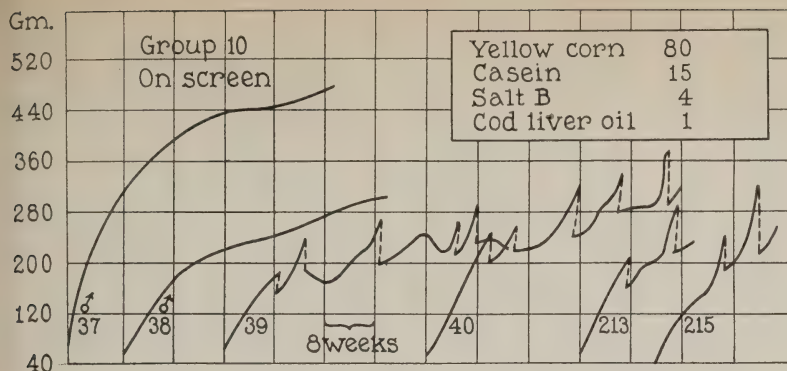 Gm.
520
440
360
280
200
120
40
Group 10
On screen
Yellow corn 80
Casein 15
Salt B 4
Cod liver oil 1
♂
37
♂
38
39
8 weeks
40
213
215